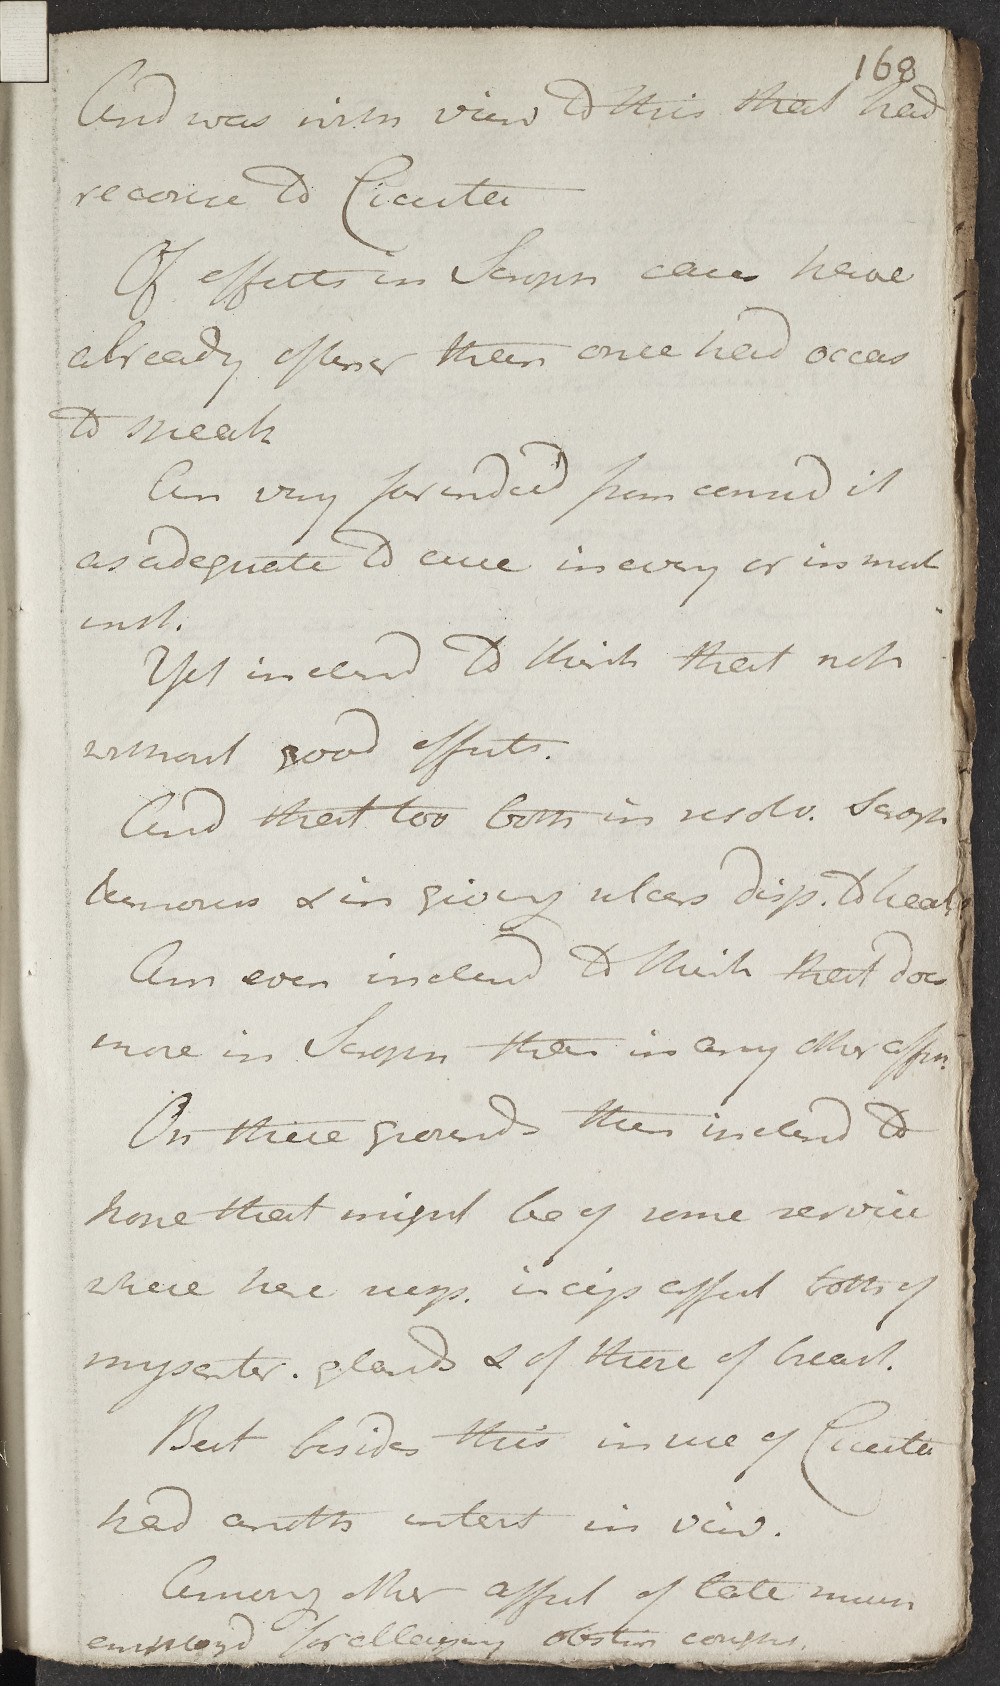 168
And was with view to this that had
recourse to Cicuta
Of effects in Scroph cases have
already oftener than once had occas
to speak
Am very far indeed from consid it
as adequate to cure in every or in most
inst.
Yet inclend to think that not
without good effects.
And that too both in resolv. Scroph
tumours & in giving ulcers disp. to heal
Am even inclend to think that does
more in Scroph than in any other affn.
On these grounds then inclend to
hope that might be of some service
where here incip affect both of
mysenter. glands & of those of breast.
But besides this in use of Cicuta
had anoth intent in view.
Among other affect of late much
employd for allaying obstin coughs.